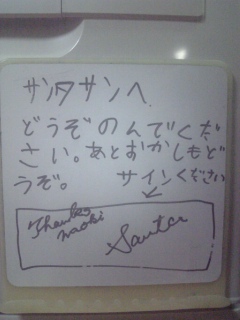 サンタサンへ
どうぞのんでくだ
さい。あとおかしもど
うぞ。 サインください
Thanks
naoki
Santa